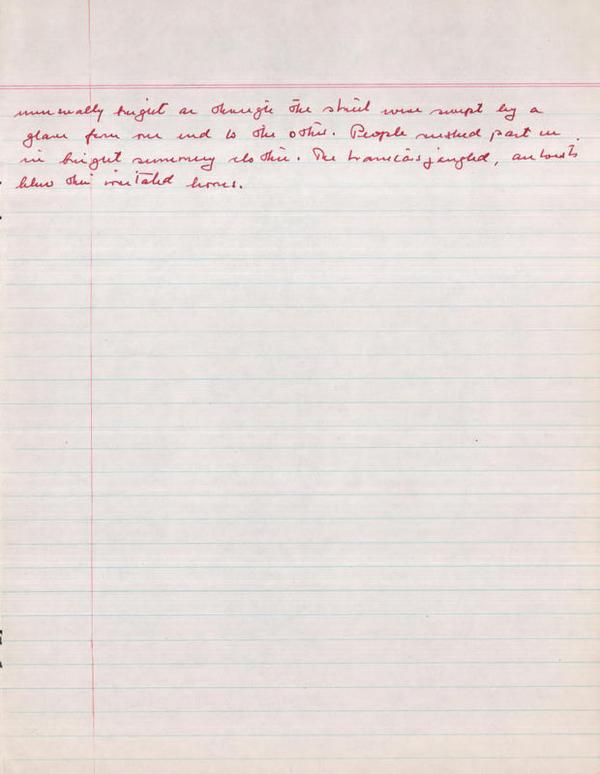 unusually bright as though the street were swept by a
glare from one end to the other. People rushed past me
in bright summery clothes. The tramcars jangled, autoists
blew their irritated horns.